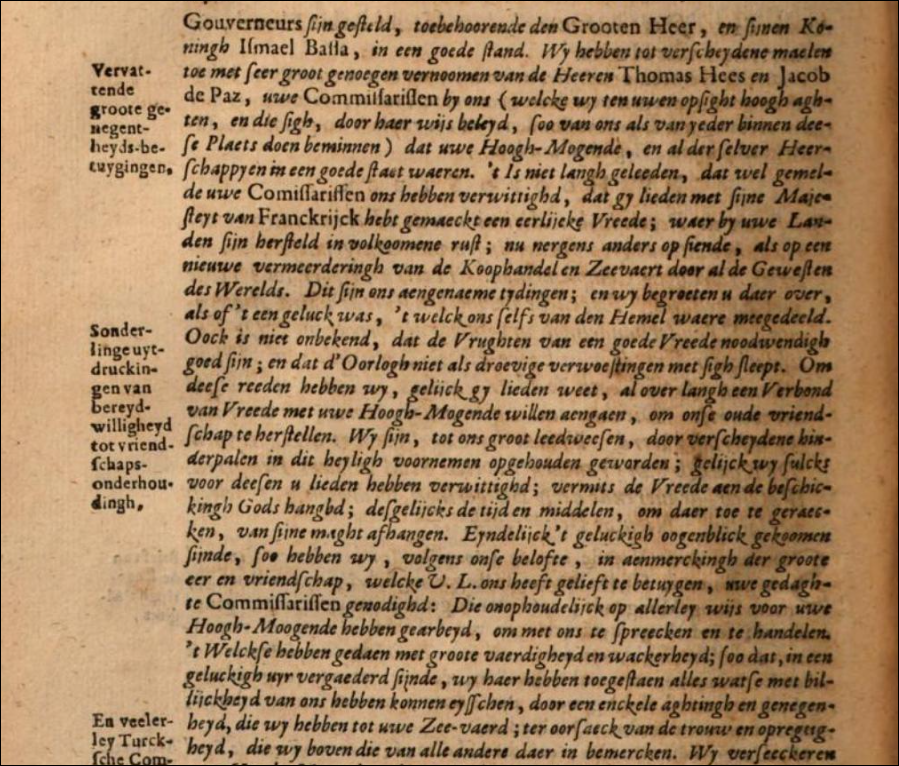 Gouverneurs ſijn geſteld, toebehoorende den Grooten Heer, en ſijnen Ko-
ningh Iſmael Baſſa, in een goede ſtand. Wy hebben tot verſcheydene maelen
toe met ſeer groot genoegen vernoomen van de Heeren Thomas Hees en Jacob
de Paz, uwe Commiſſariſſen by ons (welcke wy ten uwen opſight hoogh agh-
ten, en die ſigh, door haer wijs beleyd, ſoo van ons als van yeder binnen dee-
ſe Plaets doen beminnen) dat uwe Hoogh-Mogende, en al der ſelver Heer-
ſchappyen in een goede ſtaet waeren. 't Is niet langh geleeden, dat wel gemel-
de uwe Comiſſariſſen ons hebben verwittighd, dat gy lieden met ſijne Maje-
ſteyt van Franckrijck hebt gemaeckt een eerlijcke Vreede; waer by uwe Lan-
den ſijn herſteld in volkoomene ruſt; nu nergens anders op ſiende, als op een
nieuwe vermeerderingh van de Koophandel en Zeevaert door al de Geweſten
des Werelds. Dit ſijn ons aengenaeme tydingen; en wy begroeten u daer over,
als of 't een geluck was, 't welck ons ſelfs van den Hemel waere meegedeeld.
Oock is niet onbekend, dat de Vrughten van een goede Vreede noodwendigh
goed ſijn; en dat d'Oorlogh niet als droevige verwoeſtingen met ſigh ſleept. Om
deeſe reeden hebben wy, gelijck gy lieden weet, al over langh een Verbond
van Vreede met uwe Hoogh-Mogende willen aengaen, om onſe oude vriend-
ſchap te herſtellen. Wy ſijn, tot ons groot leedweeſen, door verſcheydene hin-
derpalen in dit heyligh voornemen opgehouden geworden; gelijck wy ſulcks
voor deeſen u lieden hebben verwittighd; vermits de Vreede aen de beſchic-
kingh Gods hanghd; deſgelijcks de tijd en middelen, om daer toe te geraec-
ken, van ſijne maght afhangen. Eyndelijck 't geluckigh oogenblick gekoomen
ſijnde, ſoo hebben wy, volgens onſe belofte, in aenmerckingh der groote
eer en vriendſchap, welcke U. L. ons heeft gelieft te betuygen, uwe gedagh-
te Commiſſariſſen genodighd: Die onophoudelijck op allerley wijs voor uwe
Hoogh-Moogende hebben gearbeyd, om met ons te ſpreecken en te handelen.
't Welckſe hebben gedaen met groote vaerdigheyd en wackerheyd; ſoo dat, in een
geluckigh uyr vergaederd ſijnde, wy haer hebben toegeſtaen alles watſe met bil-
lijckheyd van ons hebben konnen eyſſchen, door een enckele aghtingh en genegen-
heyd, die wy hebben tot uwe Zee-vaerd; ter oorſaeck van de trouw en opregtig-
heyd, die wy boven die van alle andere daer in bemercken. Wy verſeeckeren
Vervat-
tende
groote ge-
negent-
heyds-be-
tuygingen,
Sonder-
linge uyt-
druckin-
gen van
bereyd-
willigheyd
tot vriend-
ſchaps-
onderhou-
dingh,
En veeler-
ley Turck-
ſche Com-